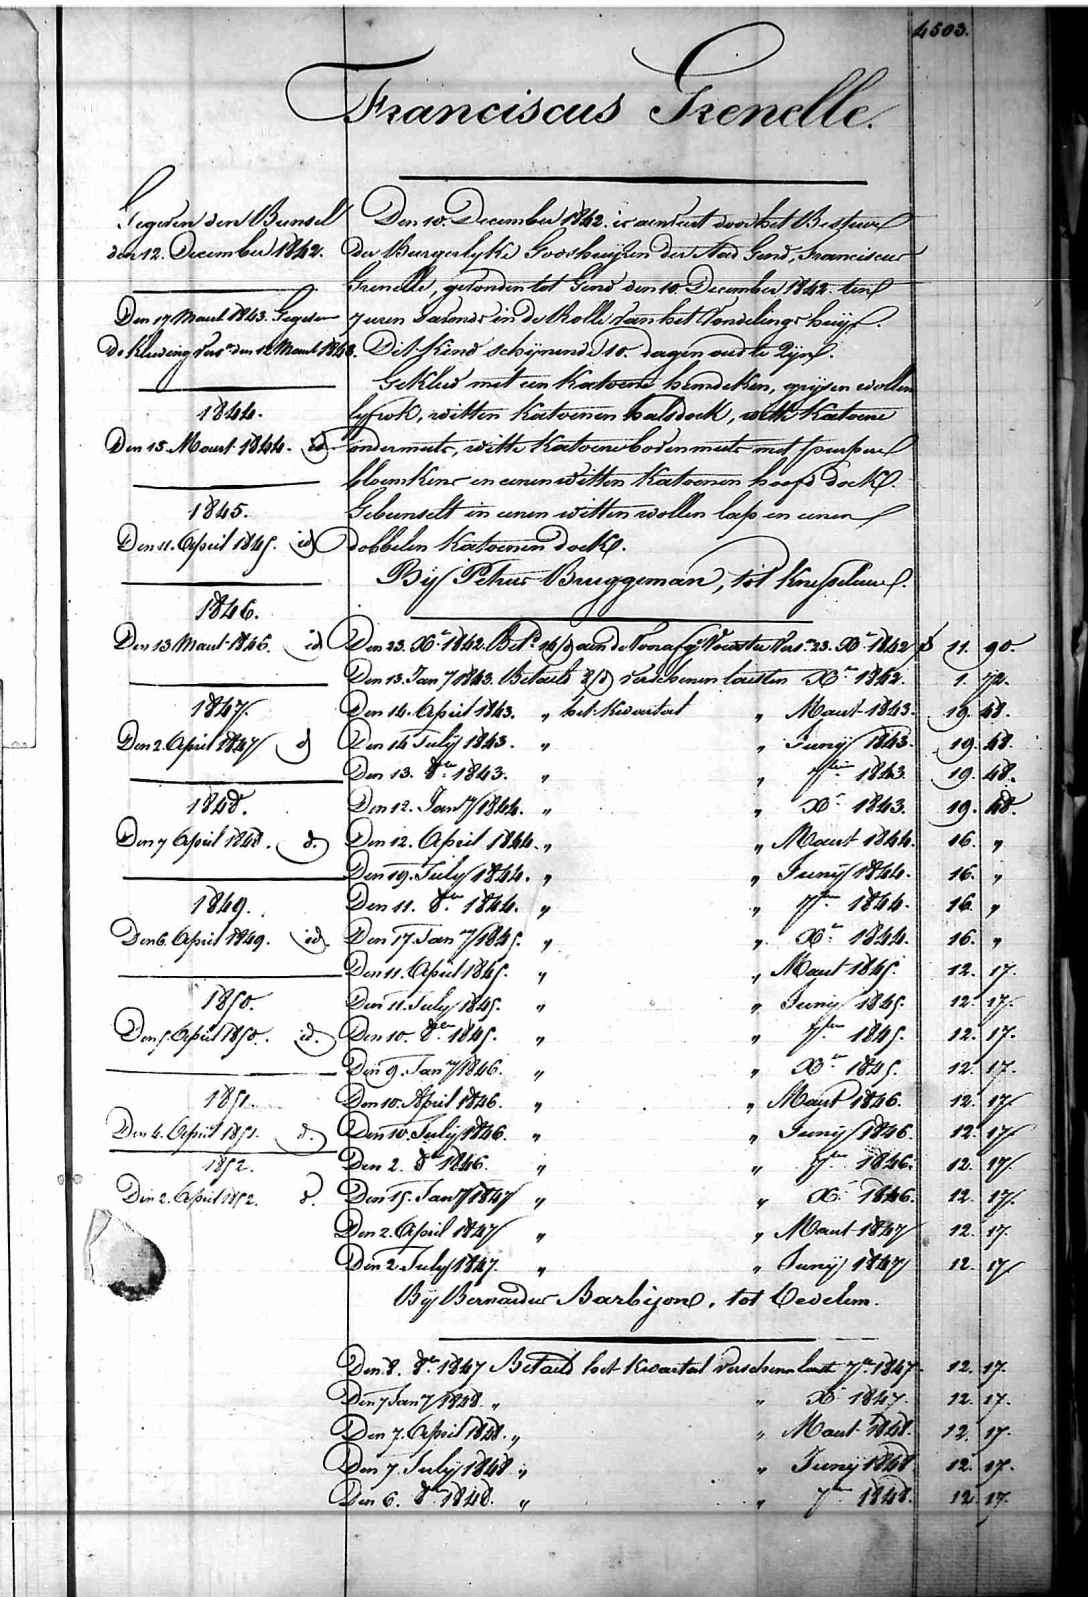 4503.
Franciscus Grenelle.
Gegeven den Bunsel
den 12. December 1842.
Den 17 Maart 1843. Gegeven
de kleeding vers. den 12 Maart 1843.
1844.
Den 15. Maart 1844. id.
1845.
Den 11. April 1845. id
1846.
Den 13 Maart 1846. id
1847.
Den 2. April 1847 d
1848.
Den 7 April 1848. d.
1849.
Den 6. April 1849. id.
1850.
Den 5. April 1850. id.
1851.
Den 4. April 1851. d.
1852.
Den 2. April 1852. d.
Den 10. December 1842. is aenveert door het Bestuur
der Burgerlyke Godshuijzen der stad Gend, Franciscus
Grenelle, gevonden tot Gend den 10 December 1842. ten
7 uren savonds in de Rolle van het Vondelings huijs.
Dit kind schijnende 10. dagen oud te zijn.
Gekleed met een katoene hemdeken, grijsen wollen
lyfrok, witten katoenen halsdoek, witte katoene
ondermuts, witte katoene bovenmuts met purpure
bloemkens en eenen witten katoenen hoofd doek.
Gebunselt in eenen witten wollen lap en eenen
dobbelen katoenen doek.
Bij Petrus Bruggeman, tot Knesselaere.
Den 23. Xr 1842. Bet. aen de Voorafg. Voedster vers. 23. Xr 1842 11. 90.
Den 13. Jany 1843. Betaelt verschenen lausten Xr 1842. 1. 72.
Den 14. April 1843. „ het kwartael „ Maart 1843. 19. 48.
Den 14 July 1843. „ „ Juny 1843. 19. 48.
Den 13. 8er 1843. „ „ 7ber 1843. 19. 48.
Den 12. Jany 1844. „ „ Xr 1843. 19. 48.
Den 12. April 1844. „ „ Maart 1844. 16. „
Den 19. July 1844. „ „ Juny 1844. 16. „
Den 11. 8er 1844. „ „ 7ber 1844. 16. „
Den 17. Jany 1845. „ „ Xr 1844. 16. „
Den 11. April 1845. „ „ Maart 1845. 12. 17.
Den 11. July 1845. „ „ Juny 1845. 12. 17.
Den 10. 8er 1845. „ „ 7ber 1845. 12. 17.
Den 9. Jany 1846. „ „ Xr 1845. 12. 17.
Den 10. April 1846. „ „ Maart 1846. 12. 17
Den 10. July 1846. „ „ Juny 1846. 12. 17
Den 2. 8er 1846. „ „ 7ber 1846. 12. 17
Den 15. Jany 1847 „ „ Xr 1846. 12. 17.
Den 2. April 1847 „ „ Maart 1847 12. 17.
Den 2 July 1847. „ „ Juny 1847 12. 17
Bij Bernardus Barbijon, tot Oedelem.
Den 8. 8er 1847 Betaeld het kwartael verschenen laust 7er 1847 12. 17.
Den 7 Jany 1848. „ „ Xr 1847. 12. 17.
Den 7. April 1848. „ „ Maart 1848. 12. 17.
Den 7. July 1848 „ „ Juny 1848 12. 17.
Den 6. 8er 1848. „ „ 7ber 1848. 12 17.